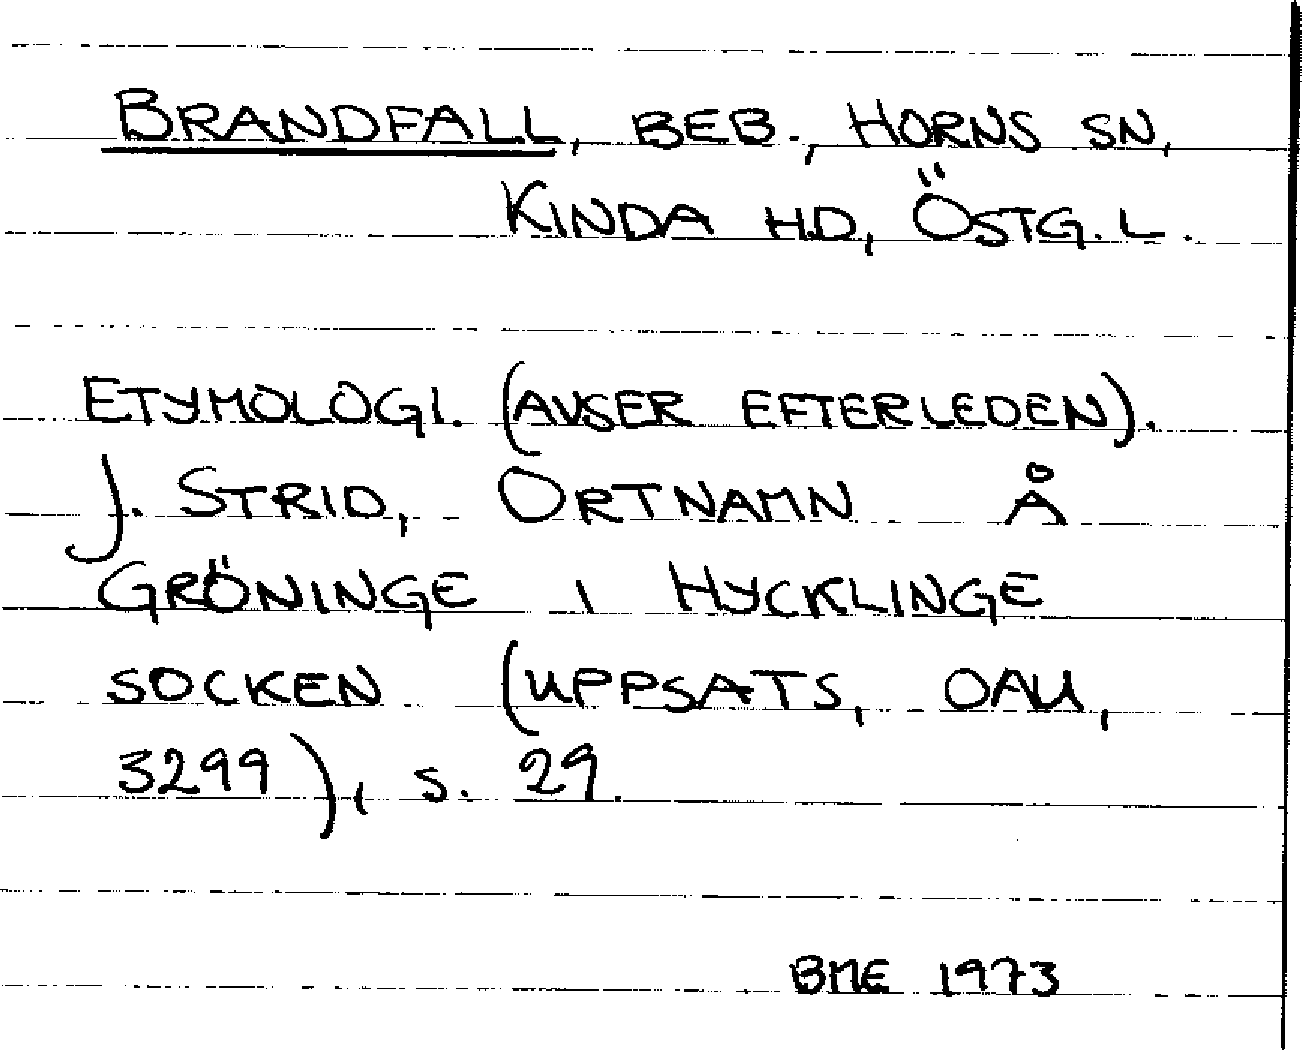 BRANDFALL, BEB., HORNS SN,
KINDA HD, ÖSTG. L.
ETYMOLOGI. (AVSER EFTERLEDEN).
J. STRID, ORTNAMN Å
GRÖNINGE I HYCKLINGE
SOCKEN (UPPSATS, OAU,
3299), S. 29.
BME 1973